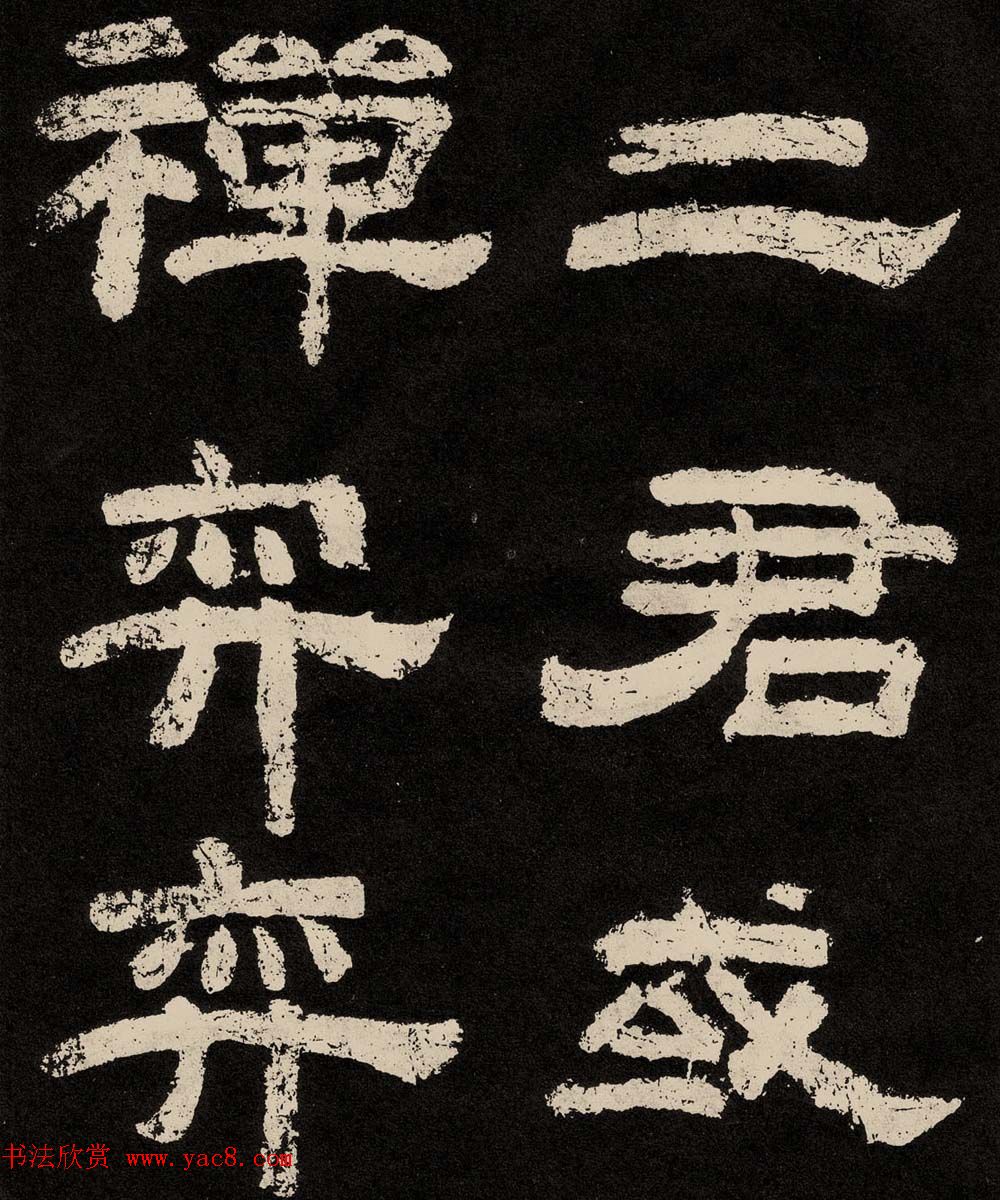 二君或
禪弈弈
书法欣赏 www.yac8.com